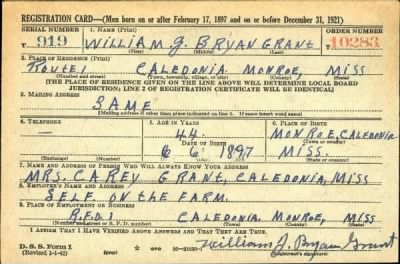 REGISTRATION CARD—(Men born on or after February 17, 1897 and on or before December 31, 1921)
SERIAL NUMBER 1. NAME (Print) ORDER NUMBER
T 919 WILLIAM J BRYAN GRANT 10283
(First) (Middle) (Last)
2. PLACE OF RESIDENCE (Print)
ROUTE 1 CALEDONIA MONROE, MISS
(Number and street) (Town, township, village, or city) (County) (State)
[THE PLACE OF RESIDENCE GIVEN ON THE LINE ABOVE WILL DETERMINE LOCAL BOARD
JURISDICTION; LINE 2 OF REGISTRATION CERTIFICATE WILL BE IDENTICAL]
3. MAILING ADDRESS
SAME
[Mailing address if other than place indicated on line 2. If same insert word same]
4. TELEPHONE 5. AGE IN YEARS 6. PLACE OF BIRTH
44 MONROE, CALEDONIA
DATE OF BIRTH (Town or county)
6 6 1897 MISS.
(Exchange) (Number) (Mo.) (Day) (Yr.) (State or country)
7. NAME AND ADDRESS OF PERSON WHO WILL ALWAYS KNOW YOUR ADDRESS
MRS. CAREY GRANT, CALEDONIA, MISS
8. EMPLOYER'S NAME AND ADDRESS
SELF. ON THE FARM.
9. PLACE OF EMPLOYMENT OR BUSINESS
R.F.D. 1 CALEDONIA. MONROE, MISS
(Number and street or R. F. D. number) (Town) (County) (State)
I AFFIRM THAT I HAVE VERIFIED ABOVE ANSWERS AND THAT THEY ARE TRUE.
D. S. S. Form 1
(Revised 1-1-42) GPO William J. Bryan Grant
(Registrant's signature)